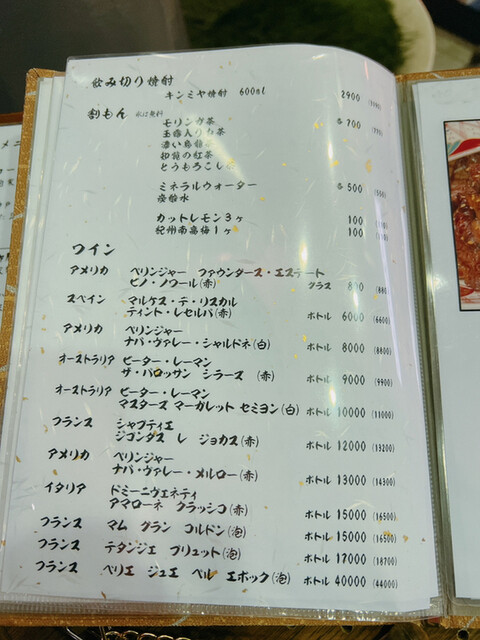 飲み切り焼酎
キンミヤ焼酎 600ml 2900
割もん 氷は無料
モリンガ茶 各700 (770)
玉露入り力茶
濃い烏龍茶
和紅の紅茶
とうもろこし
ミネラルウォーター 各500 (550)
炭酸水
カットレモン3ヶ 100 (110)
紀州南高梅1ヶ 100 (110)
ワイン
アメリカ ベリンジャー ファウンダース・エステート
ピノ・ノワール(赤) グラス 800 (880)
スペイン マルケス・デ・リスカル
ティント・レセルバ(赤) ボトル 6000 (6600)
アメリカ ベリンジャー
ナパ・ヴァレー・シャルドネ(白) ボトル 8000 (8800)
オーストラリア ピーター・レーマン
ザ・バロッサン シラーズ (赤) ボトル 9000 (9900)
オーストラリア ピーター・レーマン
マスターズ マーガレット セミヨン(白) ボトル 10000 (11000)
フランス シャプティエ
ジゴンダス レ ジョカス(赤) ボトル 12000 (13200)
アメリカ ベリンジャー
ナパ・ヴァレー・メルロー(赤) ボトル 13000 (14300)
イタリア ドミーニヴェネティ
アマローネ クラッシコ(赤) ボトル 15000 (16500)
フランス マム グラン コルドン(泡) ボトル 15000 (16500)
フランス テタンジェ ブリュット(泡) ボトル 17000 (18700)
フランス ペリエ ジュエ ベル エポック(泡) ボトル 40000 (44000)